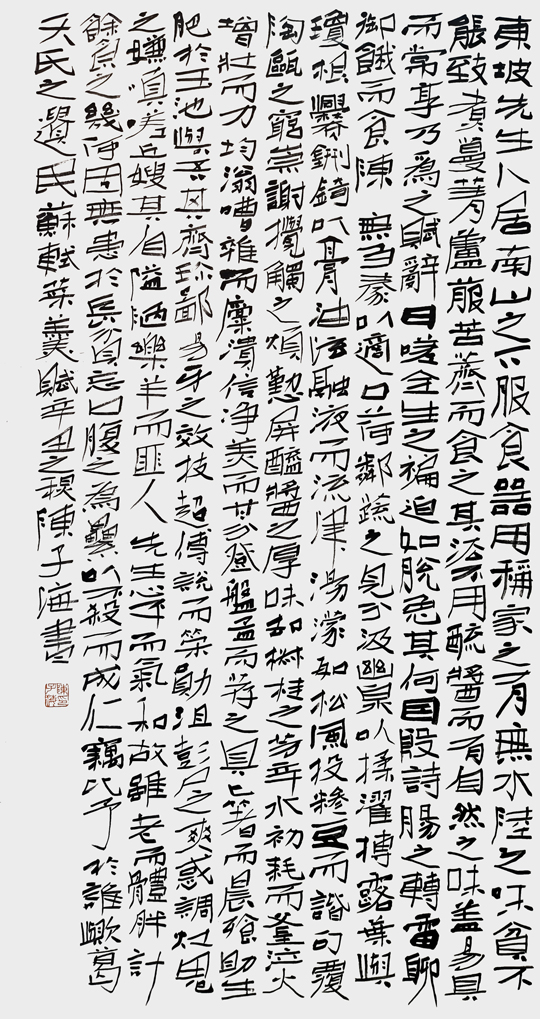 東坡先生卜居南山之下服食器用稱家之有無水陸之味貧不
能致煮蔓菁蘆菔苦薺而食之其法不用醯醬而有自然之味蓋易具
而常享乃為之賦辭曰嗟余生之褊迫如脫兔其何因殷詩腸之轉雷聊
御餓而食陳無芻豢以適口荷鄰蔬之見分汲幽泉以揉濯搏露葉與
瓊根爨鉶錡以膏油泫融液而流津湯濛如松風投糝豆而諧勻覆
陶甌之窮崇謝攪觸之煩懃屏醯醬之厚味却椒桂之芳辛水初耗而釜泣火
增壯而力均滃嘈雜而麋潰信淨美而甘分登盤盂而薦之具匕箸而晨飧助生
肥於玉池與吾鼎其齊珍鄙易牙之效技超傅說而策勛沮彭尸之爽惑調竈鬼
之嫌嗔嗟丘嫂其自隘陋樂羊而匪人先生心平而氣和故雖老而體胖計
餘食之幾何固無患於長貧忘口腹之為累以不殺而成仁竊比予於誰歟葛
天氏之遺民蘇軾菜羹賦辛丑之秋陳子海書